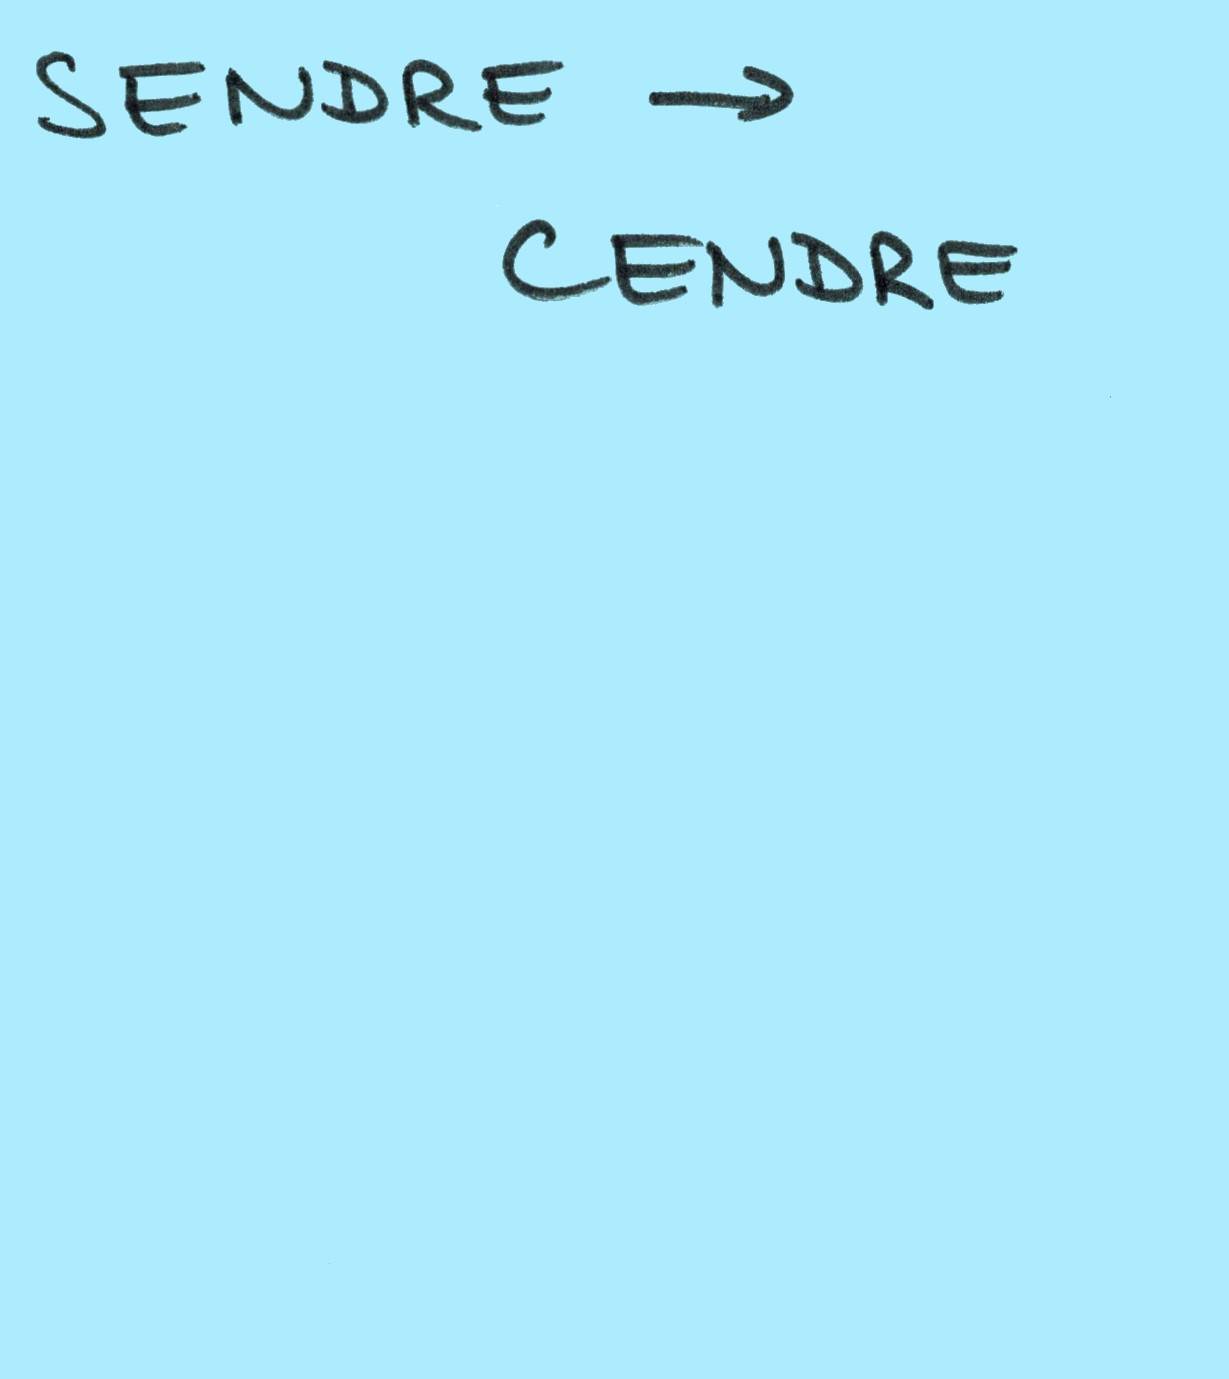 SENDRE →
CENDRE